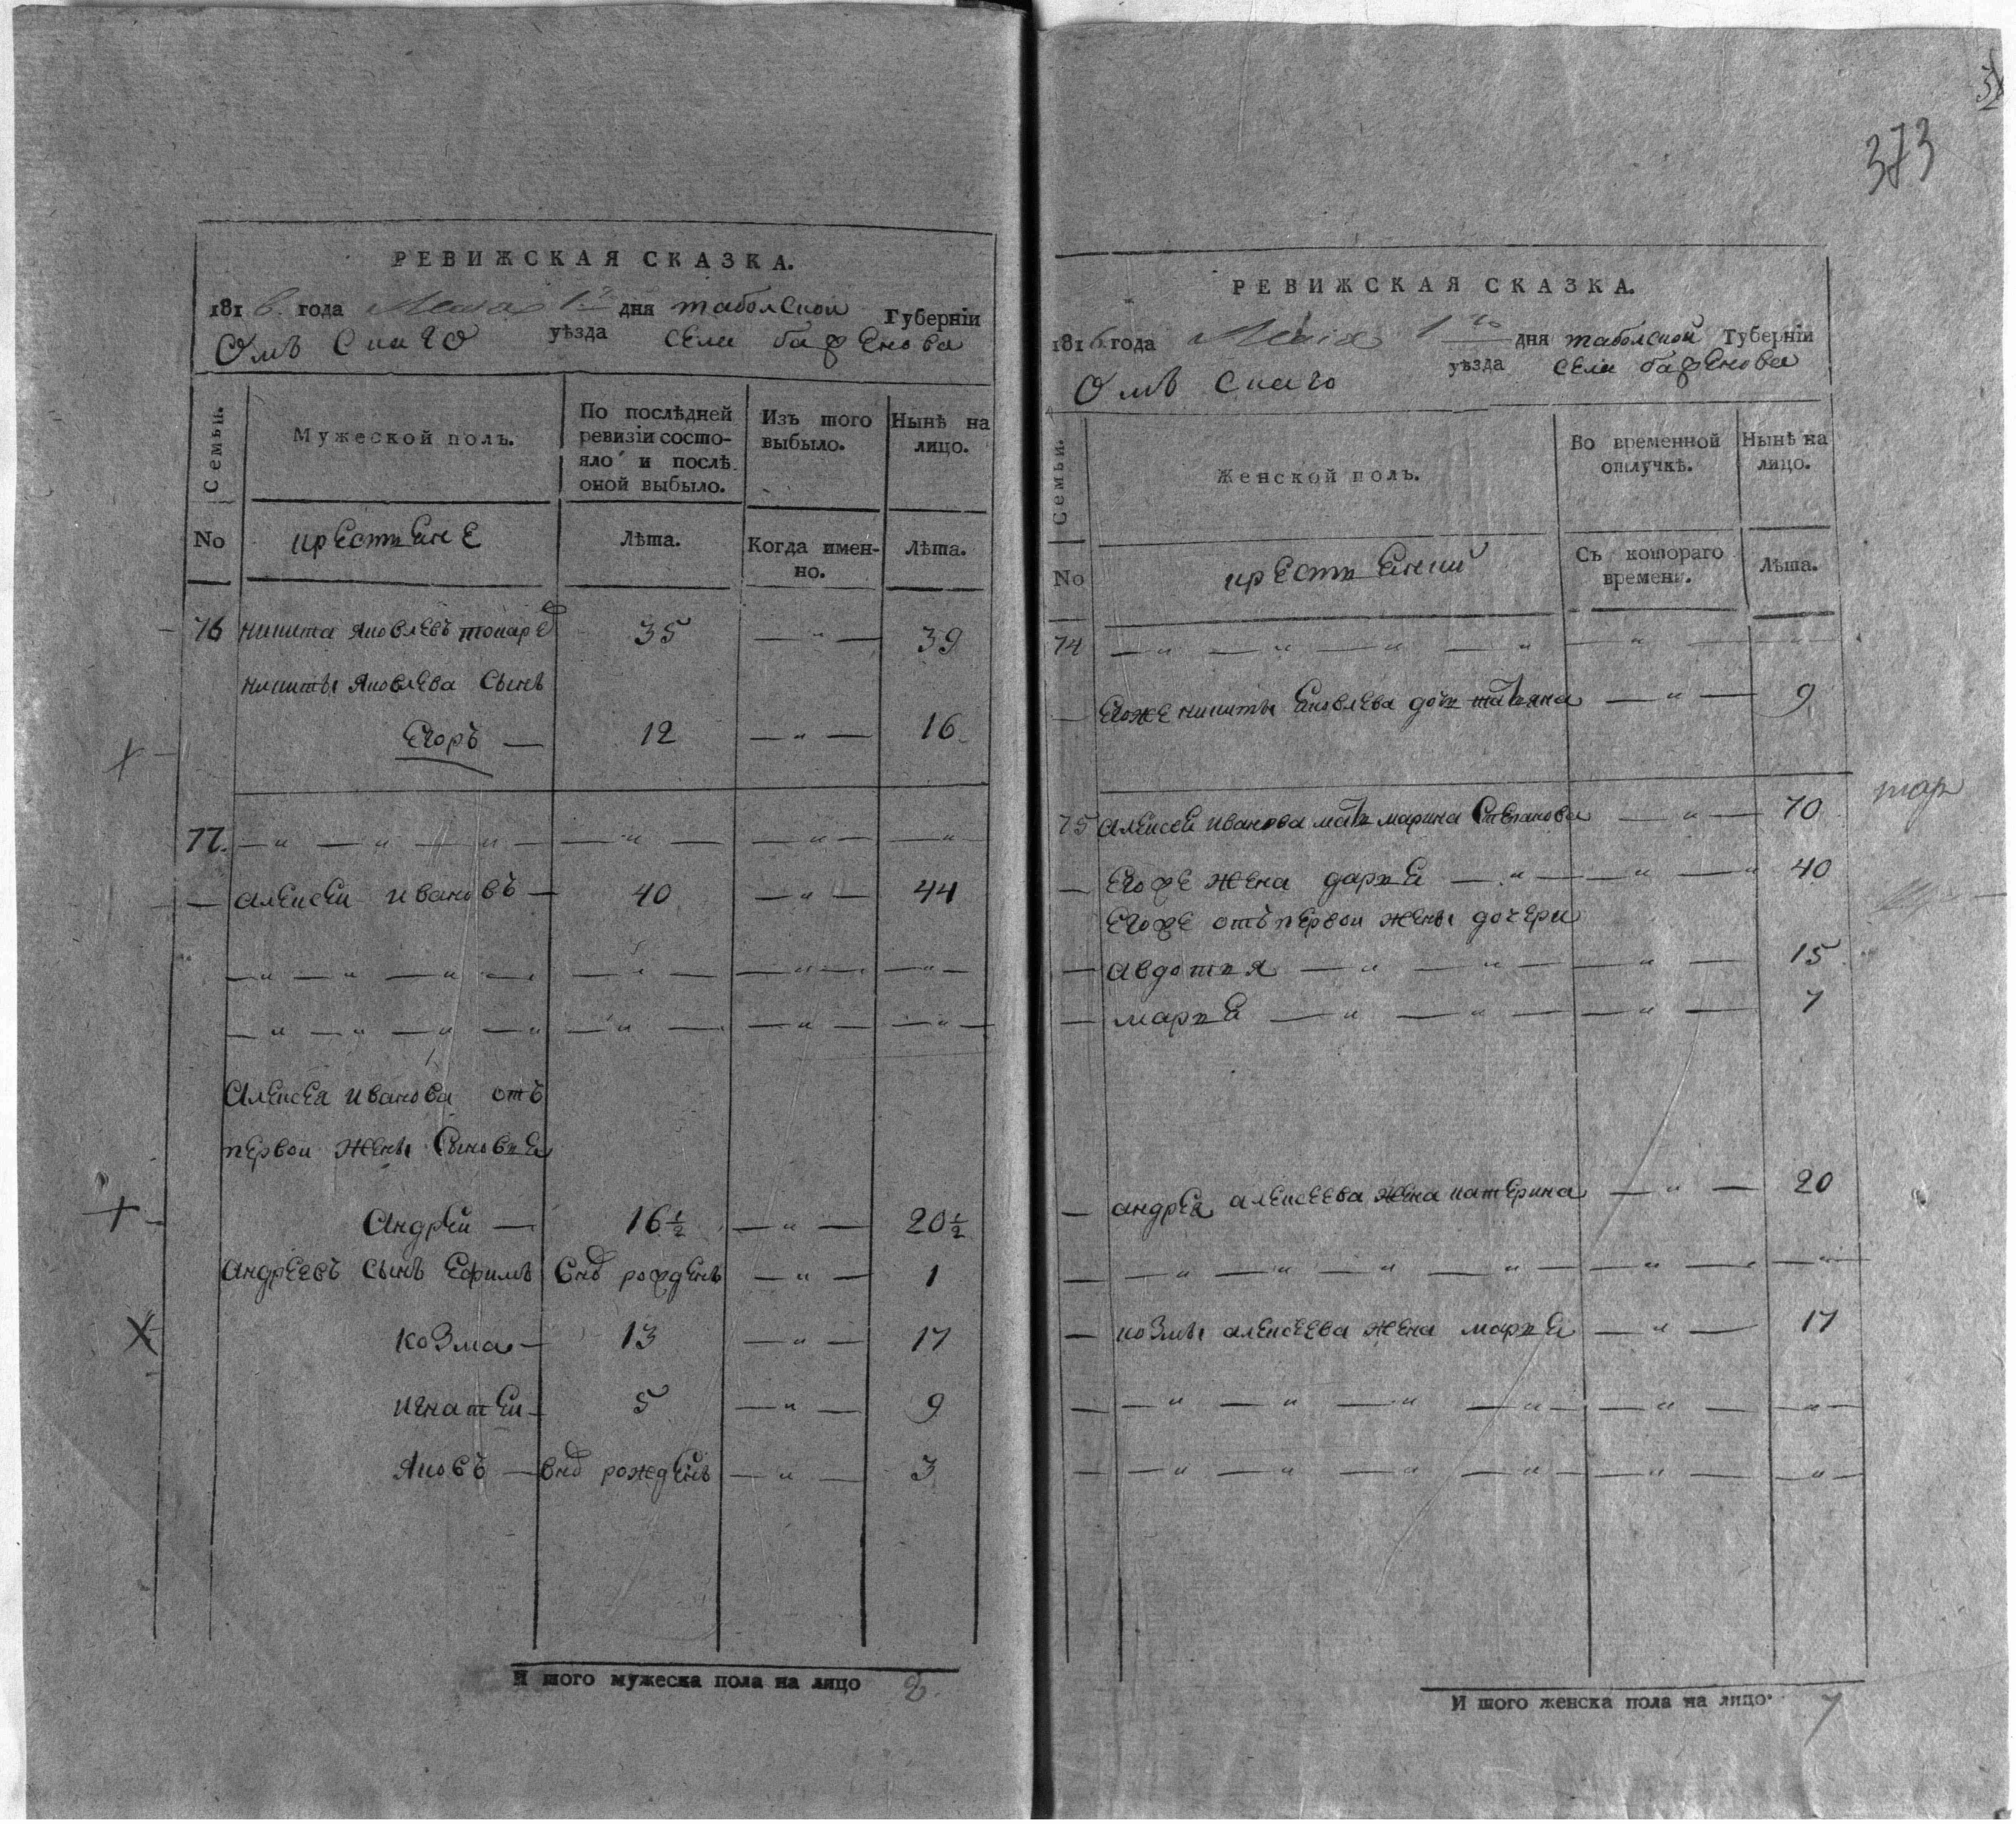 РЕВИЖСКАЯ СКАЗКА.
1816. года Маиа 1го дня таболской Губерніи
Омъ Скаго уѣзда села бафенова
Семьи.
Мужеской полъ.
По послѣдней ревизіи состояло и послѣ оной выбыло.
Изъ того выбыло.
Нынѣ на лицо.
No
крестьене
Лѣта.
Когда именно.
Лѣта.
76 никита яковлевъ токарев 35 — „ — 39
никиты яковлева сынъ
Егоръ — 12 — „ — 16
77. — „ — „ — „ — — „ — — „ — — „
— алексеи ивановъ — 40 — „ — 44
— „ — „ — „ — — „ — — „ — — „ —
— „ — „ — „ — „ — „ — — „ — — „ —
Алексея иванова отъ
первои жены сыновьеи
Андрей — 16½ — „ — 20½
Андреевъ сынъ Ефимъ Внов рожденъ — „ — 1
козма — 13 — „ — 17
игнатеи — 5 — „ — 9
яковъ — внов рожденъ — „ — 3
И того мужеска пола на лицо 8.
373
РЕВИЖСКАЯ СКАЗКА.
1816 года Маиа 1го дня таболской Губерніи
Омъ Скаго уѣзда села бафенова
Семьи.
Женской полъ.
Во временной отлучкѣ.
Нынѣ на лицо.
No
крестьянкий
Съ котораго времени.
Лѣта.
74 — „ — „ — „ — „ — „ — „
— Егоже никиты Яковлева доч татьяна — „ — 9
75 Алексея иванова мать марина Степанова — „ — 70
— Егоже жена дарья — „ — „ — „ 40
Егоже отъ первои жены дочери
— авдотья — „ — „ — — „ — 15
— марья — „ — „ — — „ — 7
— андрея алексеева жена катерина — „ — 20
— — „ — „ — „ — „ — — „ — — „
— козмы алексеева жена марья — „ — 17
— — „ — „ — „ — „ — — „ — — „ —
— — „ — „ — „ — „ — — „ — — „ —
И того женска пола на лицо. 7